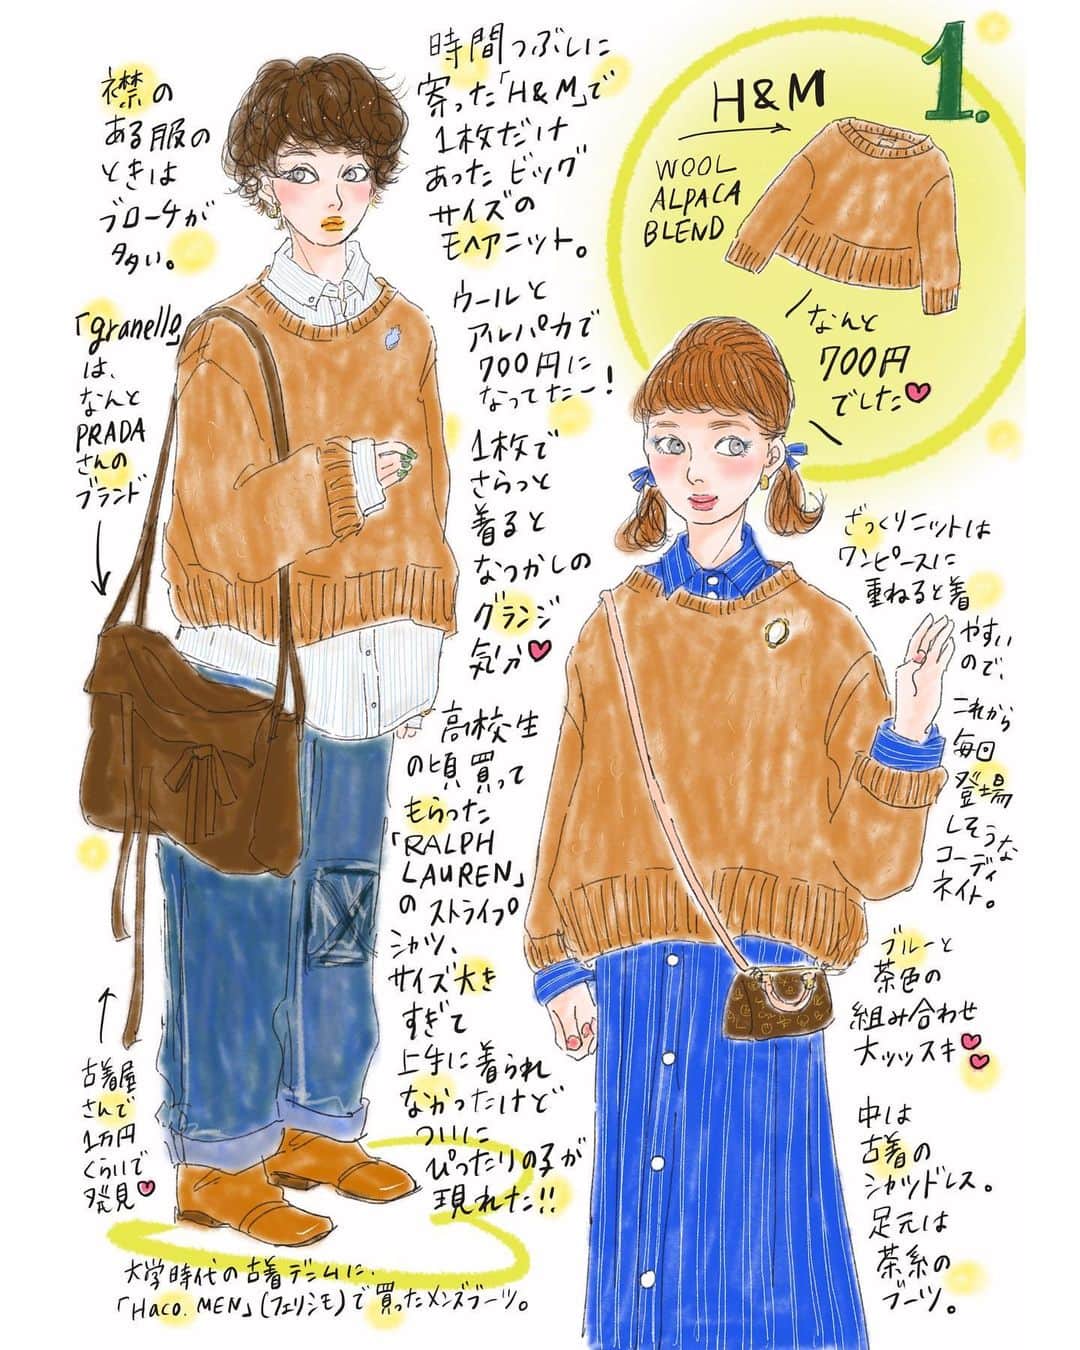 1.
H&M
WOOL
ALPACA
BLEND
なんと
700円
でした
襟の
ある服の
ときは
ブローチが
多い。
時間つぶしに
寄った「H&M」で
1枚だけ
あったビッグ
サイズの
モヘアニット。
ウールと
アルパカで
700円に
なってたー!
1枚で
さらっと
着ると
なつかしの
グランジ
気分
「granello」
は、
なんと
PRADA
さんの
ブランド
高校生
の頃買って
もらった
「RALPH
LAUREN」
の ストライプ
シャツ、
サイズ大き
すぎて
上手に着られ
なかったけど
ついに
ぴったりの子が
現れた!!
古着屋
さんで
1万円
くらいで
発見
大学時代の古着デニムに、
「Haco. MEN」(フェリシモ)で買ったメンズブーツ。
ざっくりニットは
ワンピースに
重ねると着
やすい
ので、
これから
毎日
登場
しそうな
コーディ
ネイト。
ブルーと
茶色の
組み合わせ
大ッッスキ
中は
古着の
シャツドレス。
足元は
茶系の
ブーツ。